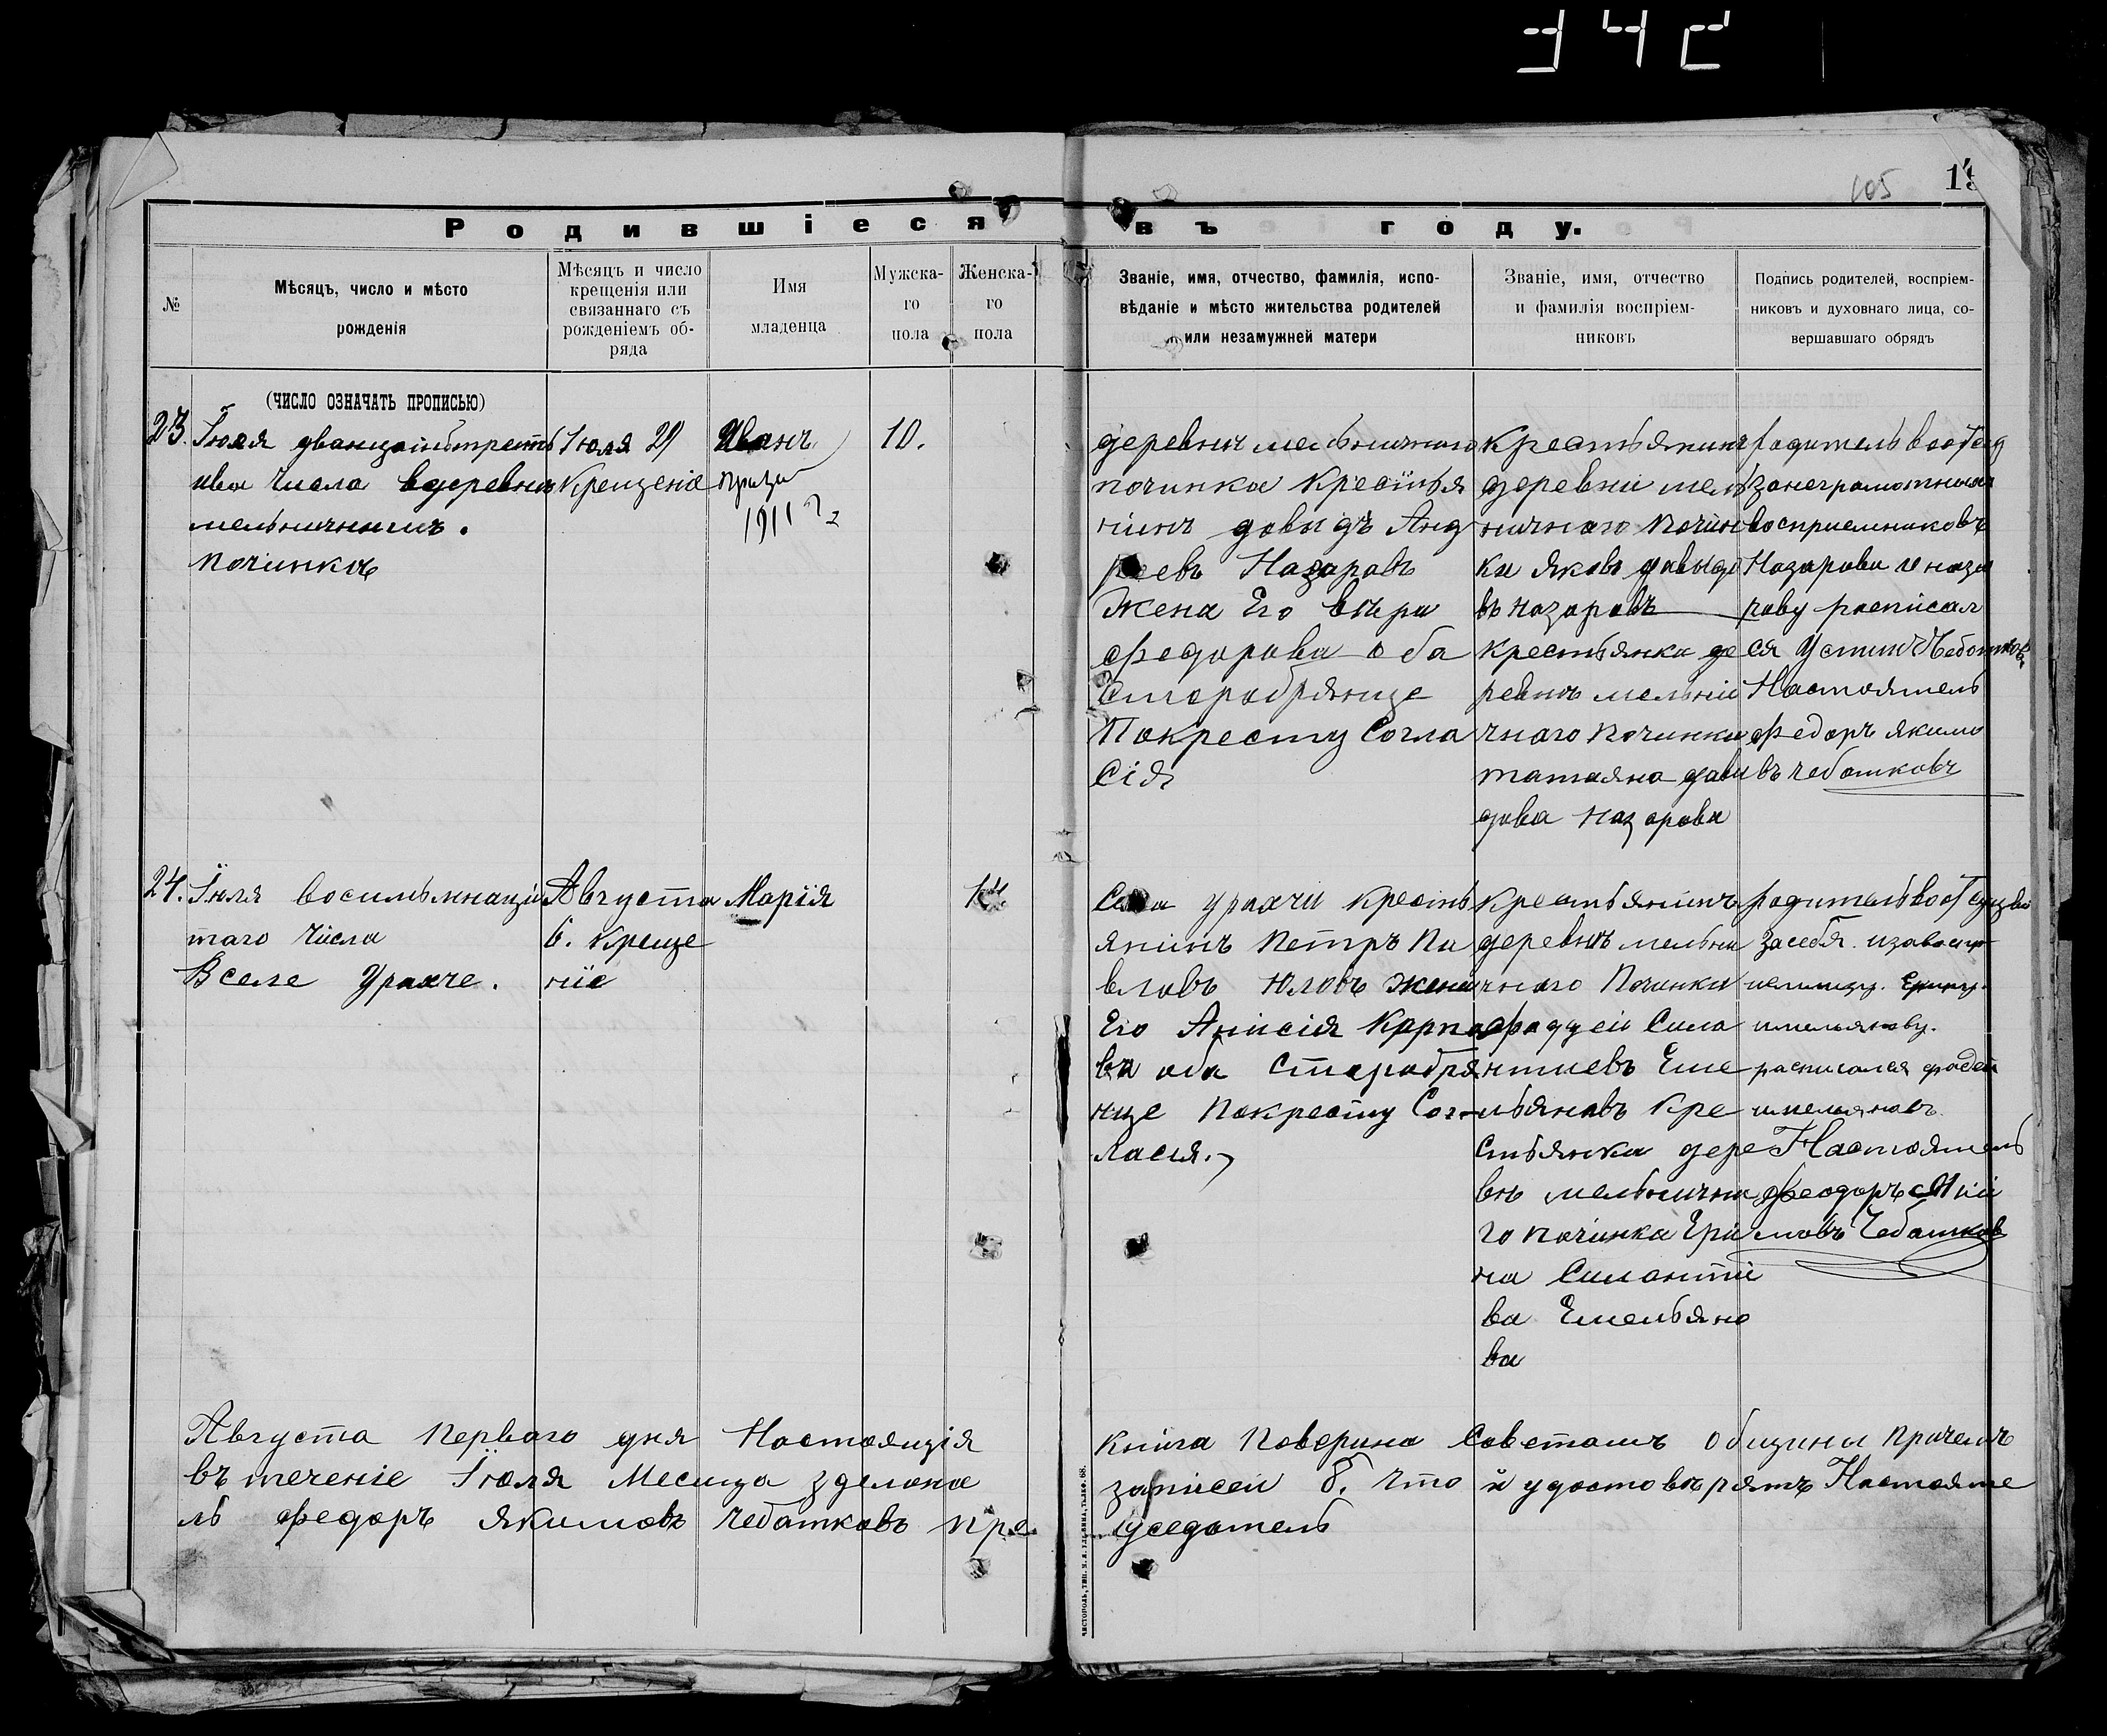 342
105
15
Родившіеся въ году.
№
Мѣсяцъ, число и мѣсто
рожденія
Мѣсяцъ и число
крещенія или
связаннаго съ
рожденіемъ об-
ряда
Имя
младенца
Мужска-
го
пола
Женска-
го
пола
Званіе, имя, отчество, фамилія, испо-
вѣданіе и мѣсто жительства родителей
или незамужней матери
Званіе, имя, отчество
и фамилія воспріем-
никовъ
Подпись родителей, воспріем-
никовъ и духовнаго лица, со-
вершавшаго обрядъ
(ЧИСЛО ОЗНАЧАТЬ ПРОПИСЬЮ)
23.
Іюля
числа вдеревнѣ
мельничнимъ.
починкѣ
Іюля 29
Крещеніе
Иванъ
1911
10.
деревни мельничнаго
починка Крестья
нинъ довидъ Анд
реевъ Назаровъ
Жена Его вѣра
Федорова оба
Старобрянце
Покресту Согла
Сія
Крестьянинъ
деревни мель
ничнаго Почин
ка яковъ давыдо
въ назаровъ
Крестьянка де
ревнѣ мельни
чнаго починка
татаяна дави
дова назарова
родитель
занеграмотныхъ
восприемниковъ
Назарова и наза
рову росписал
ся Устин Чебатковъ
Настоятель
Федоръ якимо
въ чебатковъ
24.
Іюля восимьнаци
таго числа
Вселе Урахче.
Августа
6. креще
ніе
Марія
14
Села урахчи крестъ
янинъ Петръ Па
вловъ Юловъ жена
Его Анисія Карпо
ва оба Старобря
нце Покресту Сог-
ласия.
Крестьянинъ
деревнѣ мельни
чнаго Починка
фаддей Сила
нтиевъ Еме
льяновъ Кре
стьянка дере
внѣ мельнична
го починка Ери
на Силантие
ва Емельяно
ва
родитель
засебя.
имельянову.
расписался фадей
имельяновъ
Настоятель
Феодоръ Яки
мовъ Чебатков
Августа Перваго дня Настоящія книга Поверина Советомъ общины причемъ
въ теченіе Іюля Месяца зделона записей 8. что и удостовѣрятъ Настояте
ль федоръ якимовъ чебатковъ пре дседатель